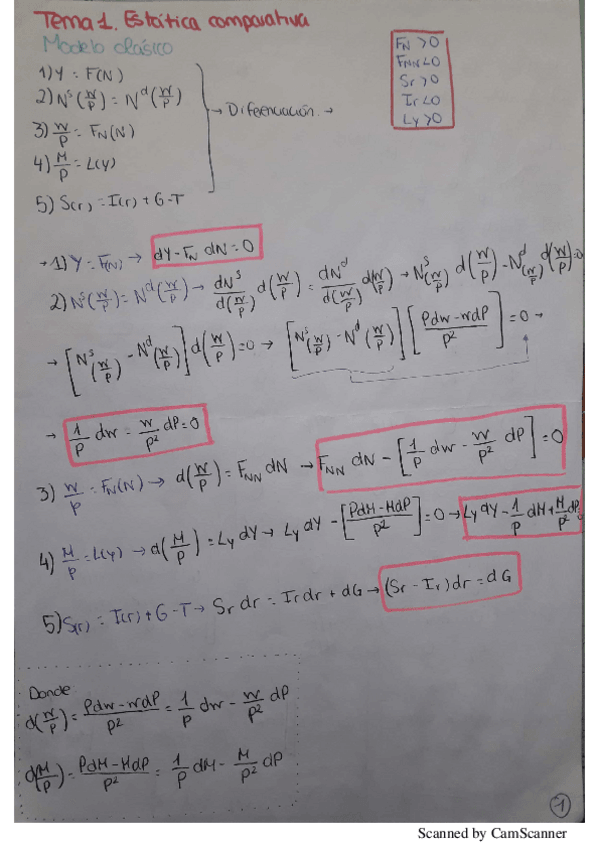 Tema 1. Estática comparativa
Modelo clásico
F_N > 0
F_NN < 0
S_r > 0
I_r < 0
L_y > 0
1) Y = F(N)
2) N^s(W/P) = N^d(W/P)
3) W/P = F_N(N)
4) M/P = L(Y)
5) S(r) = I(r) + G - T
→ Diferenciación →
→ 1) Y = F(N) → dY - F_N dN = 0
2) N^s(W/P) = N^d(W/P) → dN^s/d(W/P) d(W/P) = dN^d/d(W/P) d(W/P) → N^s_(W/P) d(W/P) - N^d_(W/P) d(W/P) = 0
→ [N^s_(W/P) - N^d_(W/P)] d(W/P) = 0 → [N^s_(W/P) - N^d_(W/P)] [(PdW - WdP)/P²] = 0 →
→ 1/P dW = W/P² dP = 0
3) W/P = F_N(N) → d(W/P) = F_NN dN → F_NN dN - [1/P dW - W/P² dP] = 0
4) M/P = L(Y) → d(M/P) = L_y dY → L_y dY - [(PdM - MdP)/P²] = 0 → L_y dY - 1/P dM + M/P² dP = 0
5) S(r) = I(r) + G - T → S_r dr = I_r dr + dG → (S_r - I_r) dr = dG
Donde
d(W/P) = (PdW - WdP)/P² = 1/P dW - W/P² dP
d(M/P) = (PdM - MdP)/P² = 1/P dM - M/P² dP
1
Scanned by CamScanner